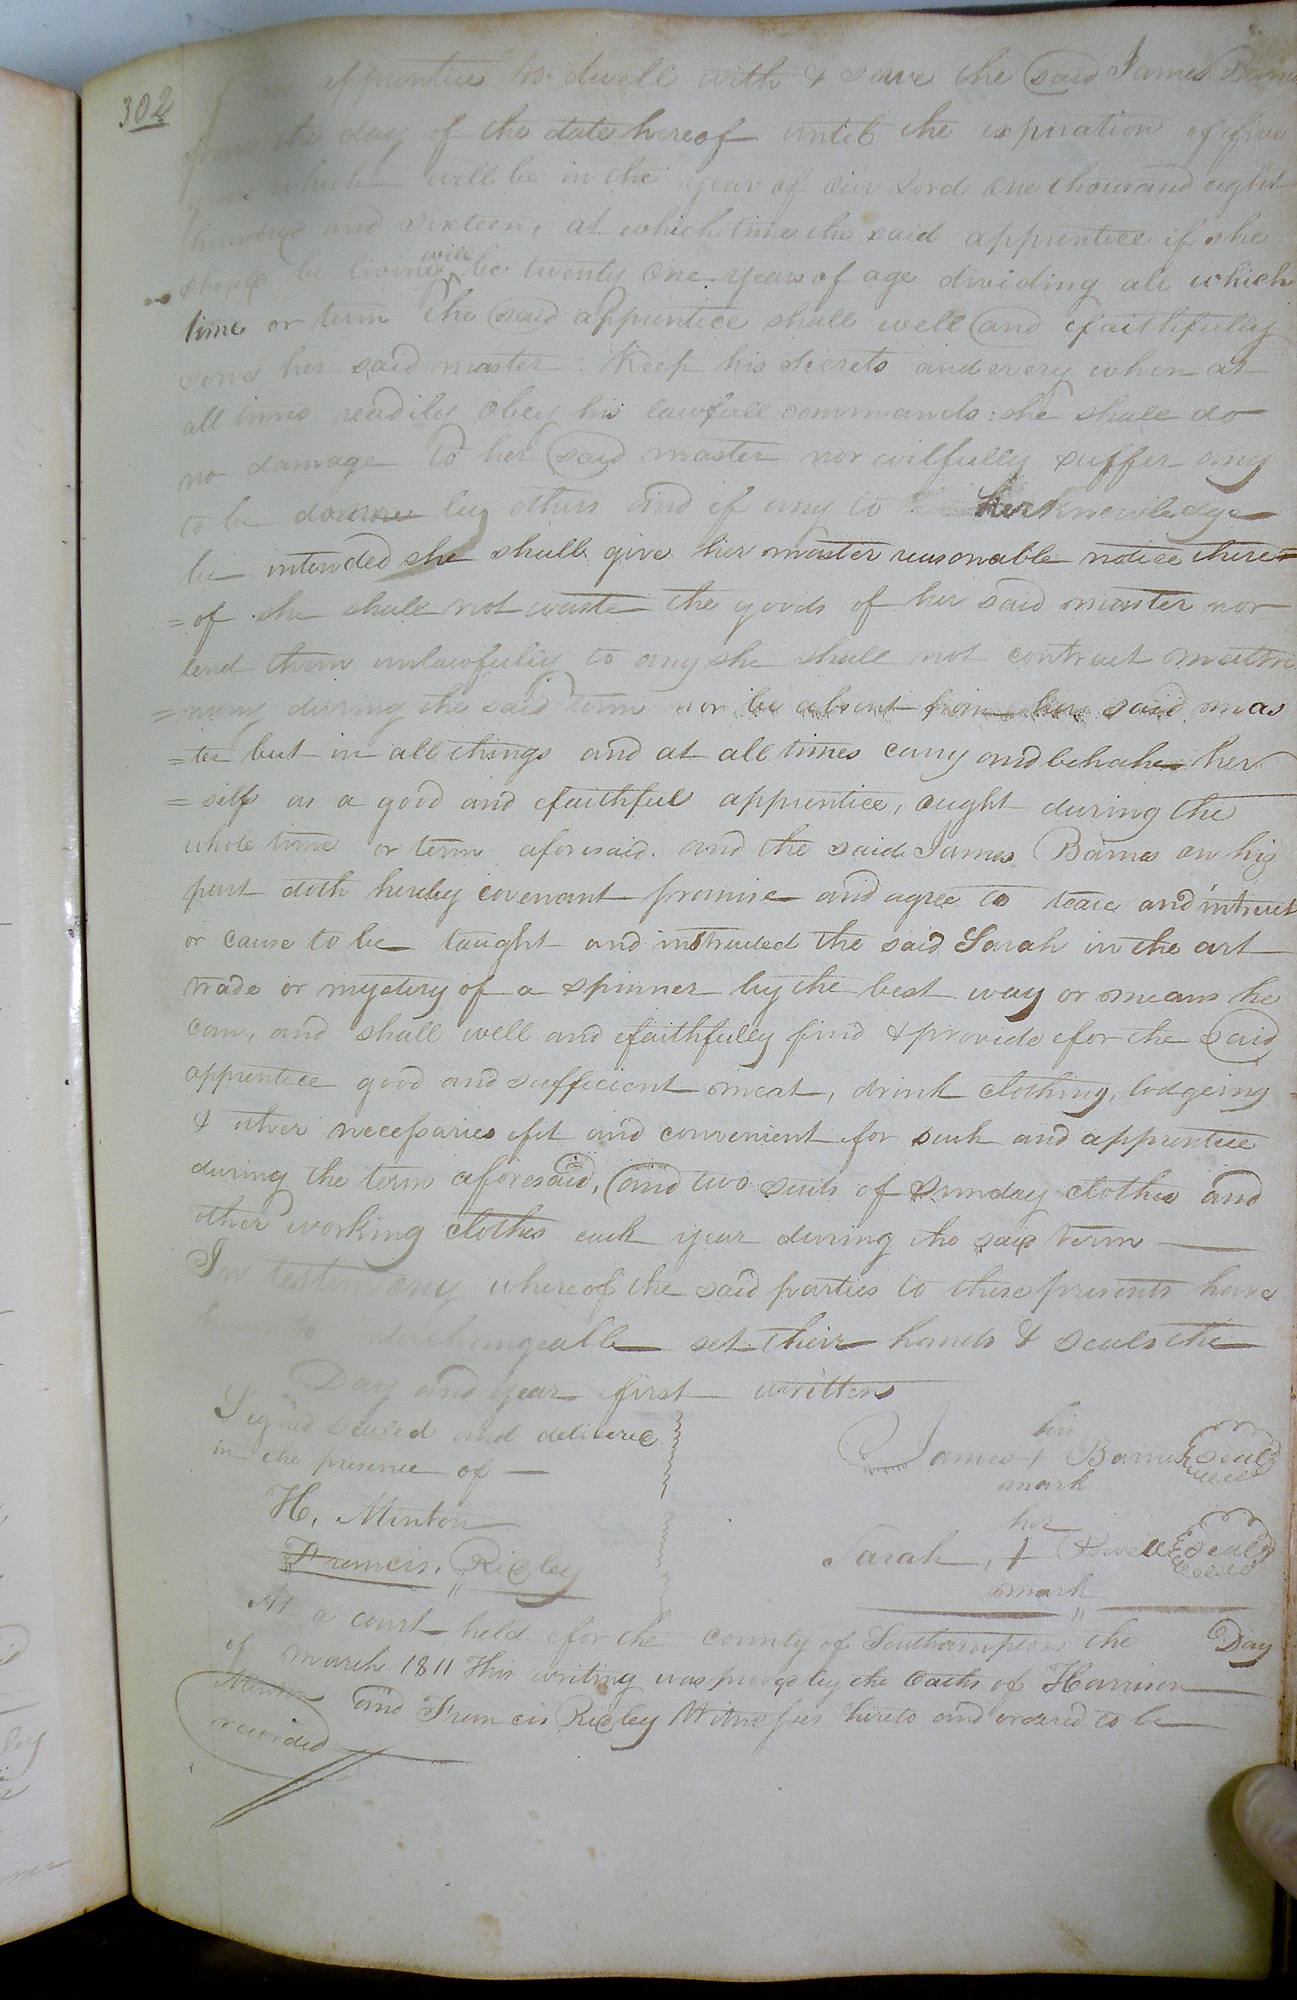 302
apprentice to dwell with & serve the said James Barnes
from the day of the date hereof until the expiration of five
years which will be in the year of our Lord one thousand eight
hundred and sixteen, at which time the said apprentice if she
should be living will be twenty one years of age dividing all which
time or term the said apprentice shall well and faithfully
serve her said master: Keep his secrets and every when at
all times readily obey his lawfull commands: she shall do
no damage to her said master nor wilfully suffer any
to be donne by others and if any to her knowledge
be intended she shall give her master reasonable notice there=
=of she shall not waste the goods of her said master nor
lend them unlawfully to any she shall not contract matri
=mony during the said term nor be absent from her said mas
=ter but in all things and at all times carry and behave her
=self as a good and faithful apprentice, ought during the
whole time or term aforesaid. and the said James Barnes on his
part doth hereby covenant promise and agree to teace and intruct
or cause to be taught and instructed the said Sarah in the art
trade or mystery of a spinner by the best way or means he
can, and shall well and faithfully find & provide for the said
apprentice good and sufficient meat, drink clothing, lodgeing
& other necessaries fit and convenient for such and apprentice
during the term aforesaid, and two suits of sunday clothes and
other working clothes each year during the said term
In testimony whereof the said parties to these presents have
hereunto interchangeable set their hands & seals the
Day and year first written
Signed sealed and delivered
in the presence of
his
James + Barnes seal
mark
H. Minton
her
Francis. Rigley
Sarah + seal
mark
At a court held for the county of Southampton the Day
of march 1811 This writing was proved by the Oaths of Harrison
Minton and Francis Rigley Witnesses hereto and ordered to be
recorded